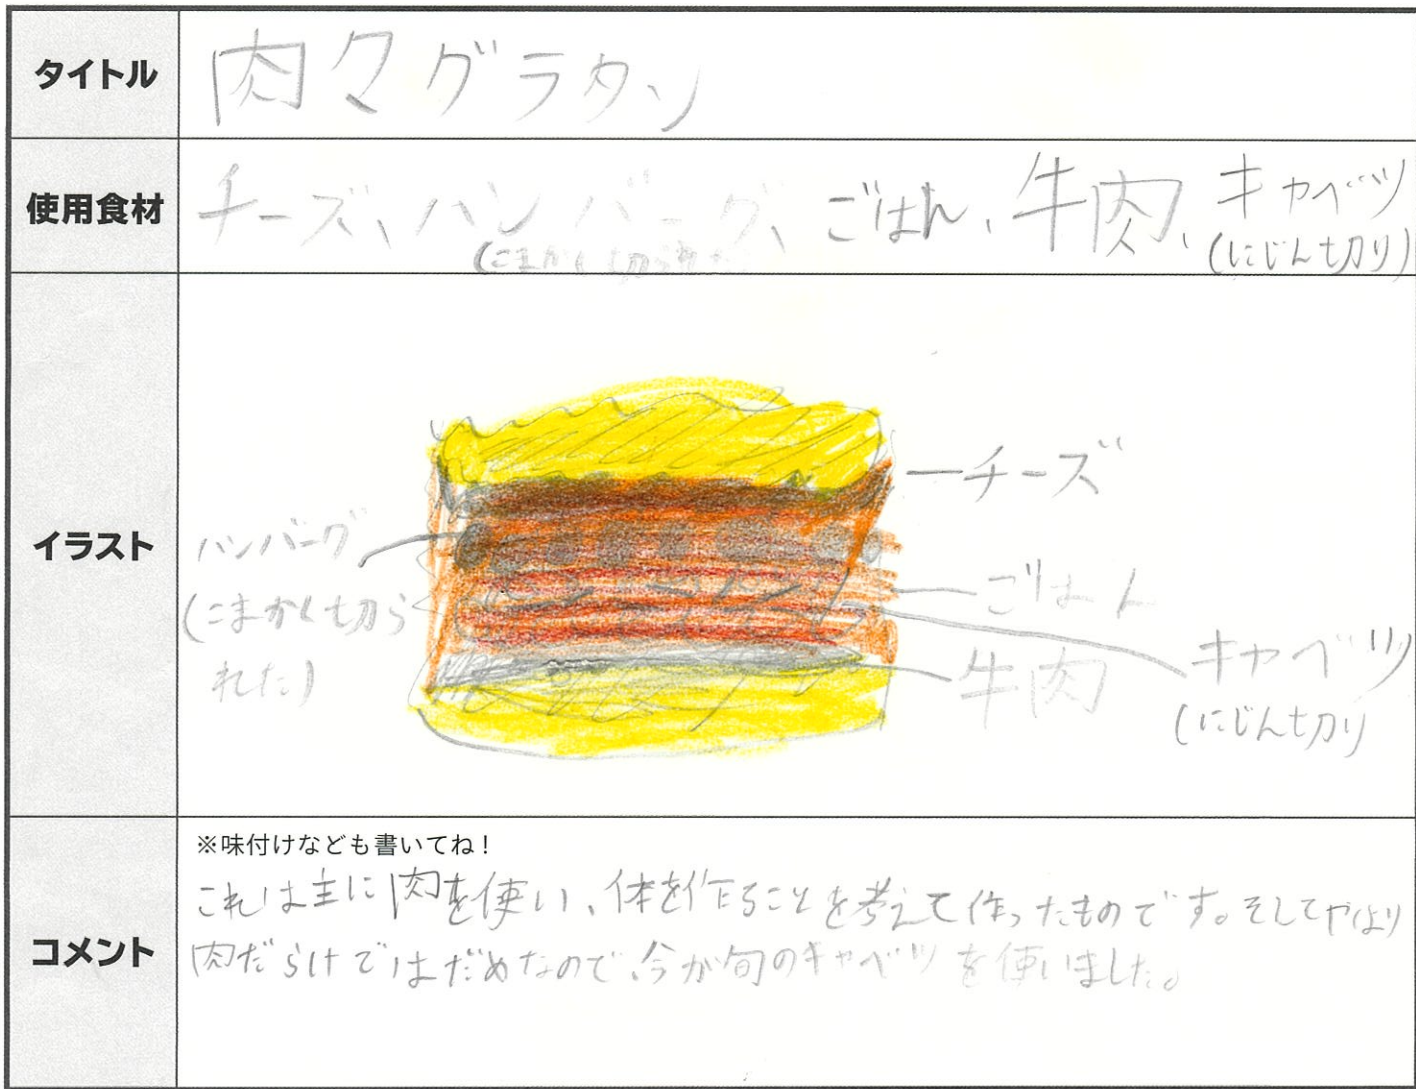 タイトル
肉々グラタン
使用食材
チーズ、ハンバーグ、ごはん、牛肉、キャベツ
(こまかく切られた) (にじん切り)
イラスト
チーズ
ハンバーグ
(こまかく切ら
れた)
ごはん
牛肉
キャベツ
(にじん切り
コメント
※味付けなども書いてね!
これは主に肉を使い、体を作ることを考えて作ったものです。そしてやはり
肉だらけではだめなので、今が旬のキャベツを使いました。